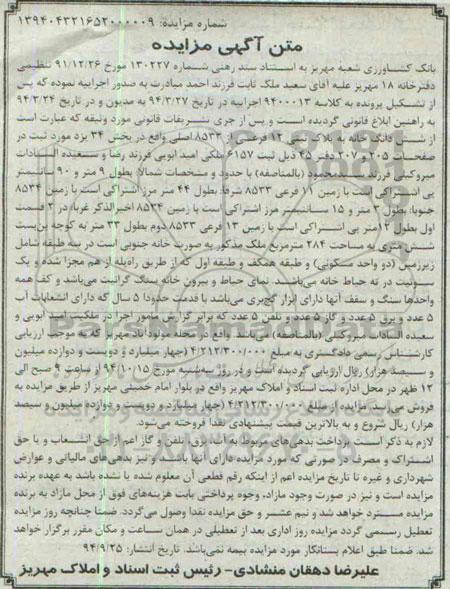 شماره مزایده: ۱۳۹۴۰۴۳۲۱۶۵۲۰۰۰۰۰۹
متن آگهی مزایده
بانک کشاورزی شعبه مهریز به استناد سند رهنی شماره ۱۳۰۲۲۷ مورخ ۹۱/۱۲/۲۶ تنظیمی
دفترخانه ۱۸ مهریز علیه آقای سعید ملک ثابت فرزند احمد مبادرت به صدور اجراییه نموده که پس
از تشکیل پرونده به کلاسه ۹۴۰۰۰۱۳ اجراییه در تاریخ ۹۴/۳/۲۷ به مدیون و در تاریخ ۹۴/۳/۲۴
به راهنین ابلاغ قانونی گردیده است و پس از جری تشریفات قانونی مورد وثیقه که عبارت است
از شش دانگ خانه به پلاک ثبتی ۱۲ فرعی از ۸۵۳۳ اصلی واقع در بخش ۳۴ یزد مورد ثبت در
صفحات ۲۰۵ و ۲۰۷ دفتر ۴۵ ذیل ثبت ۶۱۵۷ ملکی امید ابویی فرزند رضا و سعیده السادات
میروکیلی فرزند سیدمحمود (بالمناصفه) با حدود و مشخصات شمالا: بطول ۹ متر و ۹۰ سانتیمتر
پی اشتراکی است با زمین ۱۱ فرعی ۸۵۳۳ شرقا: بطول ۴۴ متر مرز اشتراکی است با زمین ۸۵۳۴
جنوبا: بطول ۳ متر و ۱۵ سانتیمتر مرز اشتراکی است با زمین ۸۵۳۴ اخیرالذکر غربا: در ۲ قسمت
اول بطول ۱۲متر پی اشتراکی است با زمین ۱۳ فرعی ۸۵۳۳ دوم بطول ۳۳ متر به کوچه بن‌بست
شش متری به مساحت ۲۸۴ مترمربع ملک مذکور به صورت خانه جنوبی است در سه طبقه شامل
زیرزمین (دو واحد مسکونی) و طبقه همکف و طبقه اول که از طریق راه‌پله از هم مجزا شده و یک
سوئیت در ته حیاط خانه می‌باشد. نمای حیاط و بیرون خانه سنگ گرانیت می‌باشد و کف همه
واحدها سنگ و سقف آنها دارای ابزار گچ‌بری می‌باشد با قدمت حدودا ۵ سال که دارای انشعابات آب
۵ عدد و برق ۵ عدد و گاز ۵ عدد و تلفن ۵ عدد که برابر گزارش مامور اجرا در ملکیت امید ابویی و
سعیده السادات میروکیلی (بالمناصفه) می‌باشد واقع در محله مولودآباد مهریز که به موجب ارزیابی
کارشناس رسمی دادگستری به مبلغ ۴/۲۱۲/۳۰۰/۰۰۰ (چهار میلیارد و دویست و دوازده میلیون
و سیصد هزار) ریال ارزیابی گردیده است و در روز سه‌شنبه مورخ ۹۴/۱۰/۱۵ از ساعت ۹ صبح الی
۱۲ ظهر در محل اداره ثبت اسناد و املاک مهریز واقع در بلوار امام خمینی مهریز از طریق مزایده به
فروش می‌رسد مزایده از مبلغ ۴/۲۱۲/۳۰۰/۰۰۰ (چهار میلیارد و دویست و دوازده میلیون و سیصد
هزار) ریال شروع و به بالاترین قیمت پیشنهادی نقدا فروخته می‌شود.
لازم به ذکر است پرداخت بدهی‌های مربوط به آب، برق، تلفن و گاز اعم از حق انشعاب و یا حق
اشتراک و مصرف در صورتی که مورد مزایده دارای آنها باشد و نیز بدهی‌های مالیاتی و عوارض
شهرداری و غیره تا تاریخ مزایده اعم از اینکه رقم قطعی آن معلوم شده یا نشده باشد به عهده برنده
مزایده است و نیز در صورت وجود مازاد، وجوه پرداختی بابت هزینه‌های فوق از محل مازاد به برنده
مزایده مسترد خواهد شد و نیم عشر و حق مزایده نقدا وصول می‌گردد. ضمنا چنانچه روز مزایده
تعطیل رسمی گردد مزایده روز اداری بعد از تعطیلی در همان ساعت و مکان مقرر برگزار خواهد
شد. ضمنا طبق اعلام بستانکار مورد مزایده بیمه نمی‌باشد. تاریخ انتشار: ۹۴/۹/۲۵
علیرضا دهقان منشادی- رئیس ثبت اسناد و املاک مهریز